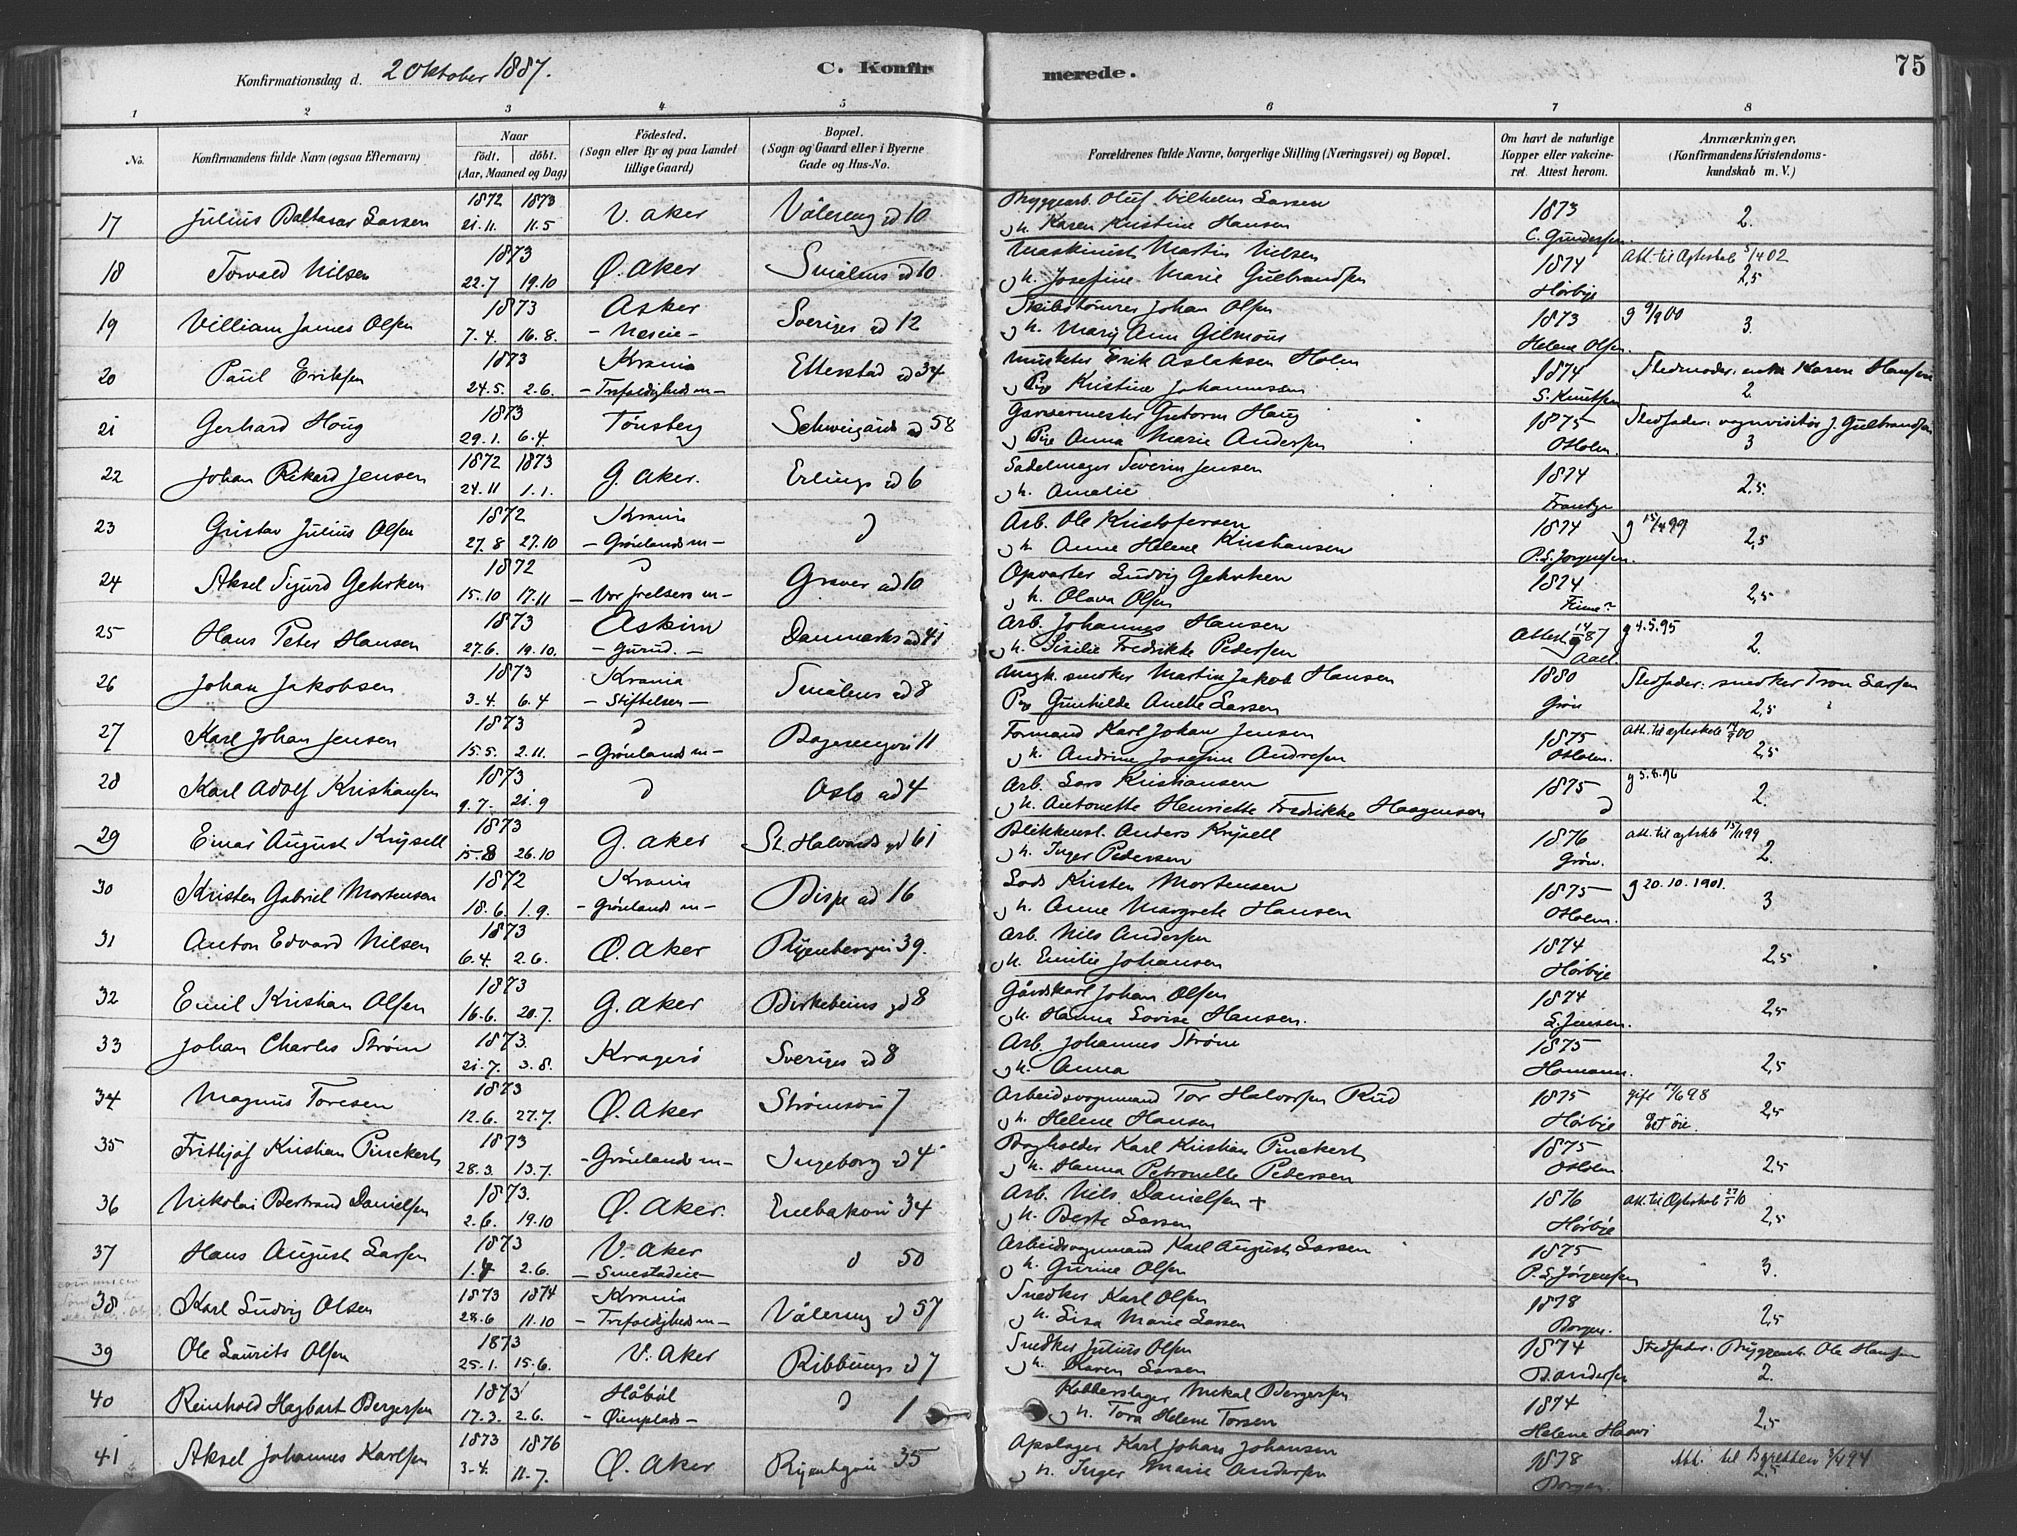 Konfirmationsdag d. 2 Oktober 1887.
C. Konfirmerede.
75
1 2 3 4 5 6 7 8
No. Konfirmandens fulde Navn (ogsaa Efternavn) Naar født. døbt. (Aar, Maaned og Dag) Födested. (Sogn eller By og paa Landet tillige Gaard) Bopæl. (Sogn og Gaard eller i Byerne Gade og Hus-No. Forældrenes fulde Navne, borgerlige Stilling (Næringsvei) og Bopæl. Om havt de naturlige Kopper eller vakcineret. Attest herom. Anmærkninger, (Konfirmandens Kristendomskundskab m. V.)
17 Julius Baltasar Larsen 1872 21.11. 1873 11.5 V. Aker Vålereng gd 10 Bryggearb. Oluf Vilhelm Larsen
og h. Karen Kristine Hansen 1873 C. Gundersen. 2.
18 Torvald Nilsen 1873 22.7 19.10 Ø. Aker Smålens gd 10. Maskinist Martin Nilsen
og h. Josefine Marie Gulbrandsen 1874 Hørbye Att. til Ægteskab 5/4 02 2,5
19 William James Olsen 1873 7.4. 16.8. Asker - Neseie - Sveriges gd 12 Skibstømrer Johan Olsen
og h. Mary Ann Gilmour 1873 Helene Olsen. 3.
20 Paul Eriksen 1873 24.5. 2.6. Krania - Trefoldigheds m - Etterstad gd 34 Musketer Erik Aslaksen Holm
og Pige Kristine Johannessen 1874 S. Knutsen Stedmoder: enke Karen Hansen 2.
21 Gerhard Houg 1873 29.1. 6.4. Tønsberg Schweigårds gd 58 Garvermester Gutorm Haug
og Pige Anna Marie Andersen 1875 O Holm. Stedfader: vognvisitør J. Gulbrandsen 3
22 Johan Rikard Jensen 1872 24.11 1873 1.1. G. Aker. Erlings gd 6 Sadelmager Severin Jensen
og h. Amalie 1874 2,5.
23 Gustav Julius Olsen 1872 27.8 27.10 Krania - Grønlands m - d Arb. Ole Kristofersen
og h. Anne Helene Kristiansen 1874 P.S. Jørgensen. g 15/4 99 2,5
24 Aksel Sigurd Gehrken 1872 15.10 17.11 d - Vor frelsers m - Graver gd 10 Opvarter Ludvig Gehrken
og h. Olava Olsen 1874 2,5
25 Hans Peter Hansen 1873 27.6. 19.10. Askim - Gurud. - Danmarks gd 41 Arb. Johannes Hansen
og h. Sisilie Fredrikke Pedersen Attest 14/9 87 Aall g 4.5.95 2.
26 Johan Jakobsen 1873 3.4. 6.4 Krania - Stiftelsen - Smålens gd 8 Ungk. snedker Martin Jakob Hansen
Pige Gunhilde Anette Larsen 1880 Grøn Stedfader: snedker Tron Larsen 2,5
27 Karl Johan Jensen 1873 15.5. 2.11. d - Grønlands m - 11 Formand Karl Johan Jensen
og h. Andrine Josefine Andresen 1875 O Holm. 2,5
28 Karl Adolf Kristiansen 1873 9.7. 21.9 d Oslo gd 4 Arb. Lars Kristiansen
og h. Antonette Henriette Fredrikke Haagensen 1875 d g 5.8.96 2.
29 Einar August Krysell 1873 15.8 26.10 G. Aker St. Halvards gd 61 Blikkensl. Anders Krysell
og h. Inger Pedersen 1876 Grøn. att. til ægtskb 15/11 99 2.
30 Kristen Gabriel Mortensen 1872 18.6. 1.9. Krania - Grønlands m - Bispe gd 16 Lods Kristen Mortensen
og h. Anne Margrete Hansen 1875 O Holm. g 20.10.1901. 3
31 Anton Edvard Nilsen 1873 6.4. 2.6. Ø. Aker Ryenbergvei 39. Arb. Nils Andersen
og h. Emilie Johansen 1874 Hørbye 2,5
32 Emil Kristian Olsen 1873 16.6. 20.7. G. Aker Birkebeins gd 8 Gårdskarl Johan Olsen
og h. Hanna Lovise Hansen. 1874 L. Jensen. 2,5
33 Johan Charles Strøm 1873. 21.7. 3.8. Kragerø Sveriges gd 8 Arb. Johannes Strøm
og h. Anna 1875 Homann. 2,5
34 Magnus Toresen 1873 12.6. 27.7. Ø. Aker Strømsvei 7 Arbeidsvognmand Tor Halvorsen Rud
og h. Helene Hansen 1875 Hørbye 2,5
35 Frithjof Kristian Pinckert 1873 28.3. 13.7. - Grønlands m - Ingeborg gd 4 Bogholder Karl Kristian Pinckert
og h. Hanna Petronelle Pedersen 1875 O Holm. 2,5
36 Nikolai Bertrand Danielsen 1873. 2.6. 19.10 Ø. Aker. Enebakvei 34 Arb. Nils Danielsen +
og h. Berte Larsen 1876 Hørbye Att. til Ægteskab 2,5
37 Hans August Larsen 1873 1.4 2.6. V. Aker - Smestadeie - d 50 Arbeidsvognmand Karl August Larsen
og h. Gurine Olsen 1875 P.S. Jørgensen 3.
38 Karl Ludvig Olsen 1873 28.6 1874 11.10 Krania - Trefoldigheds m - Vålereng gd 57 Snedker Karl Olsen
og h. Lisa Marie Larsen 1878 Borgen. 2,5
39 Ole Laurits Olsen 1873 25.1. 15.6. V. Aker Ribbungs gd 7 Snedker Julius Olsen
og h. Karen Larsen 1874 B. Andersen Stedfader: Bryggearb. Ole Hansen 2.
40 Reinhold Hagbart Bergersen 1873 17.3. 2.6. Håbøl - Øienplads - d 1 Kobberslager Mikal Bergersen
og h. Tora Helene Torsen 1874 Helene Haavi 2,5
41 Aksel Johannes Karlsen 1873 3.4. 1876 11.7. Ø. Aker Ryenbgvei 35 Opslager Karl Johan Johansen
og h. Inger Marie Andersen 1878 Borgen. Att. til Byretten 3/4 94 2,5